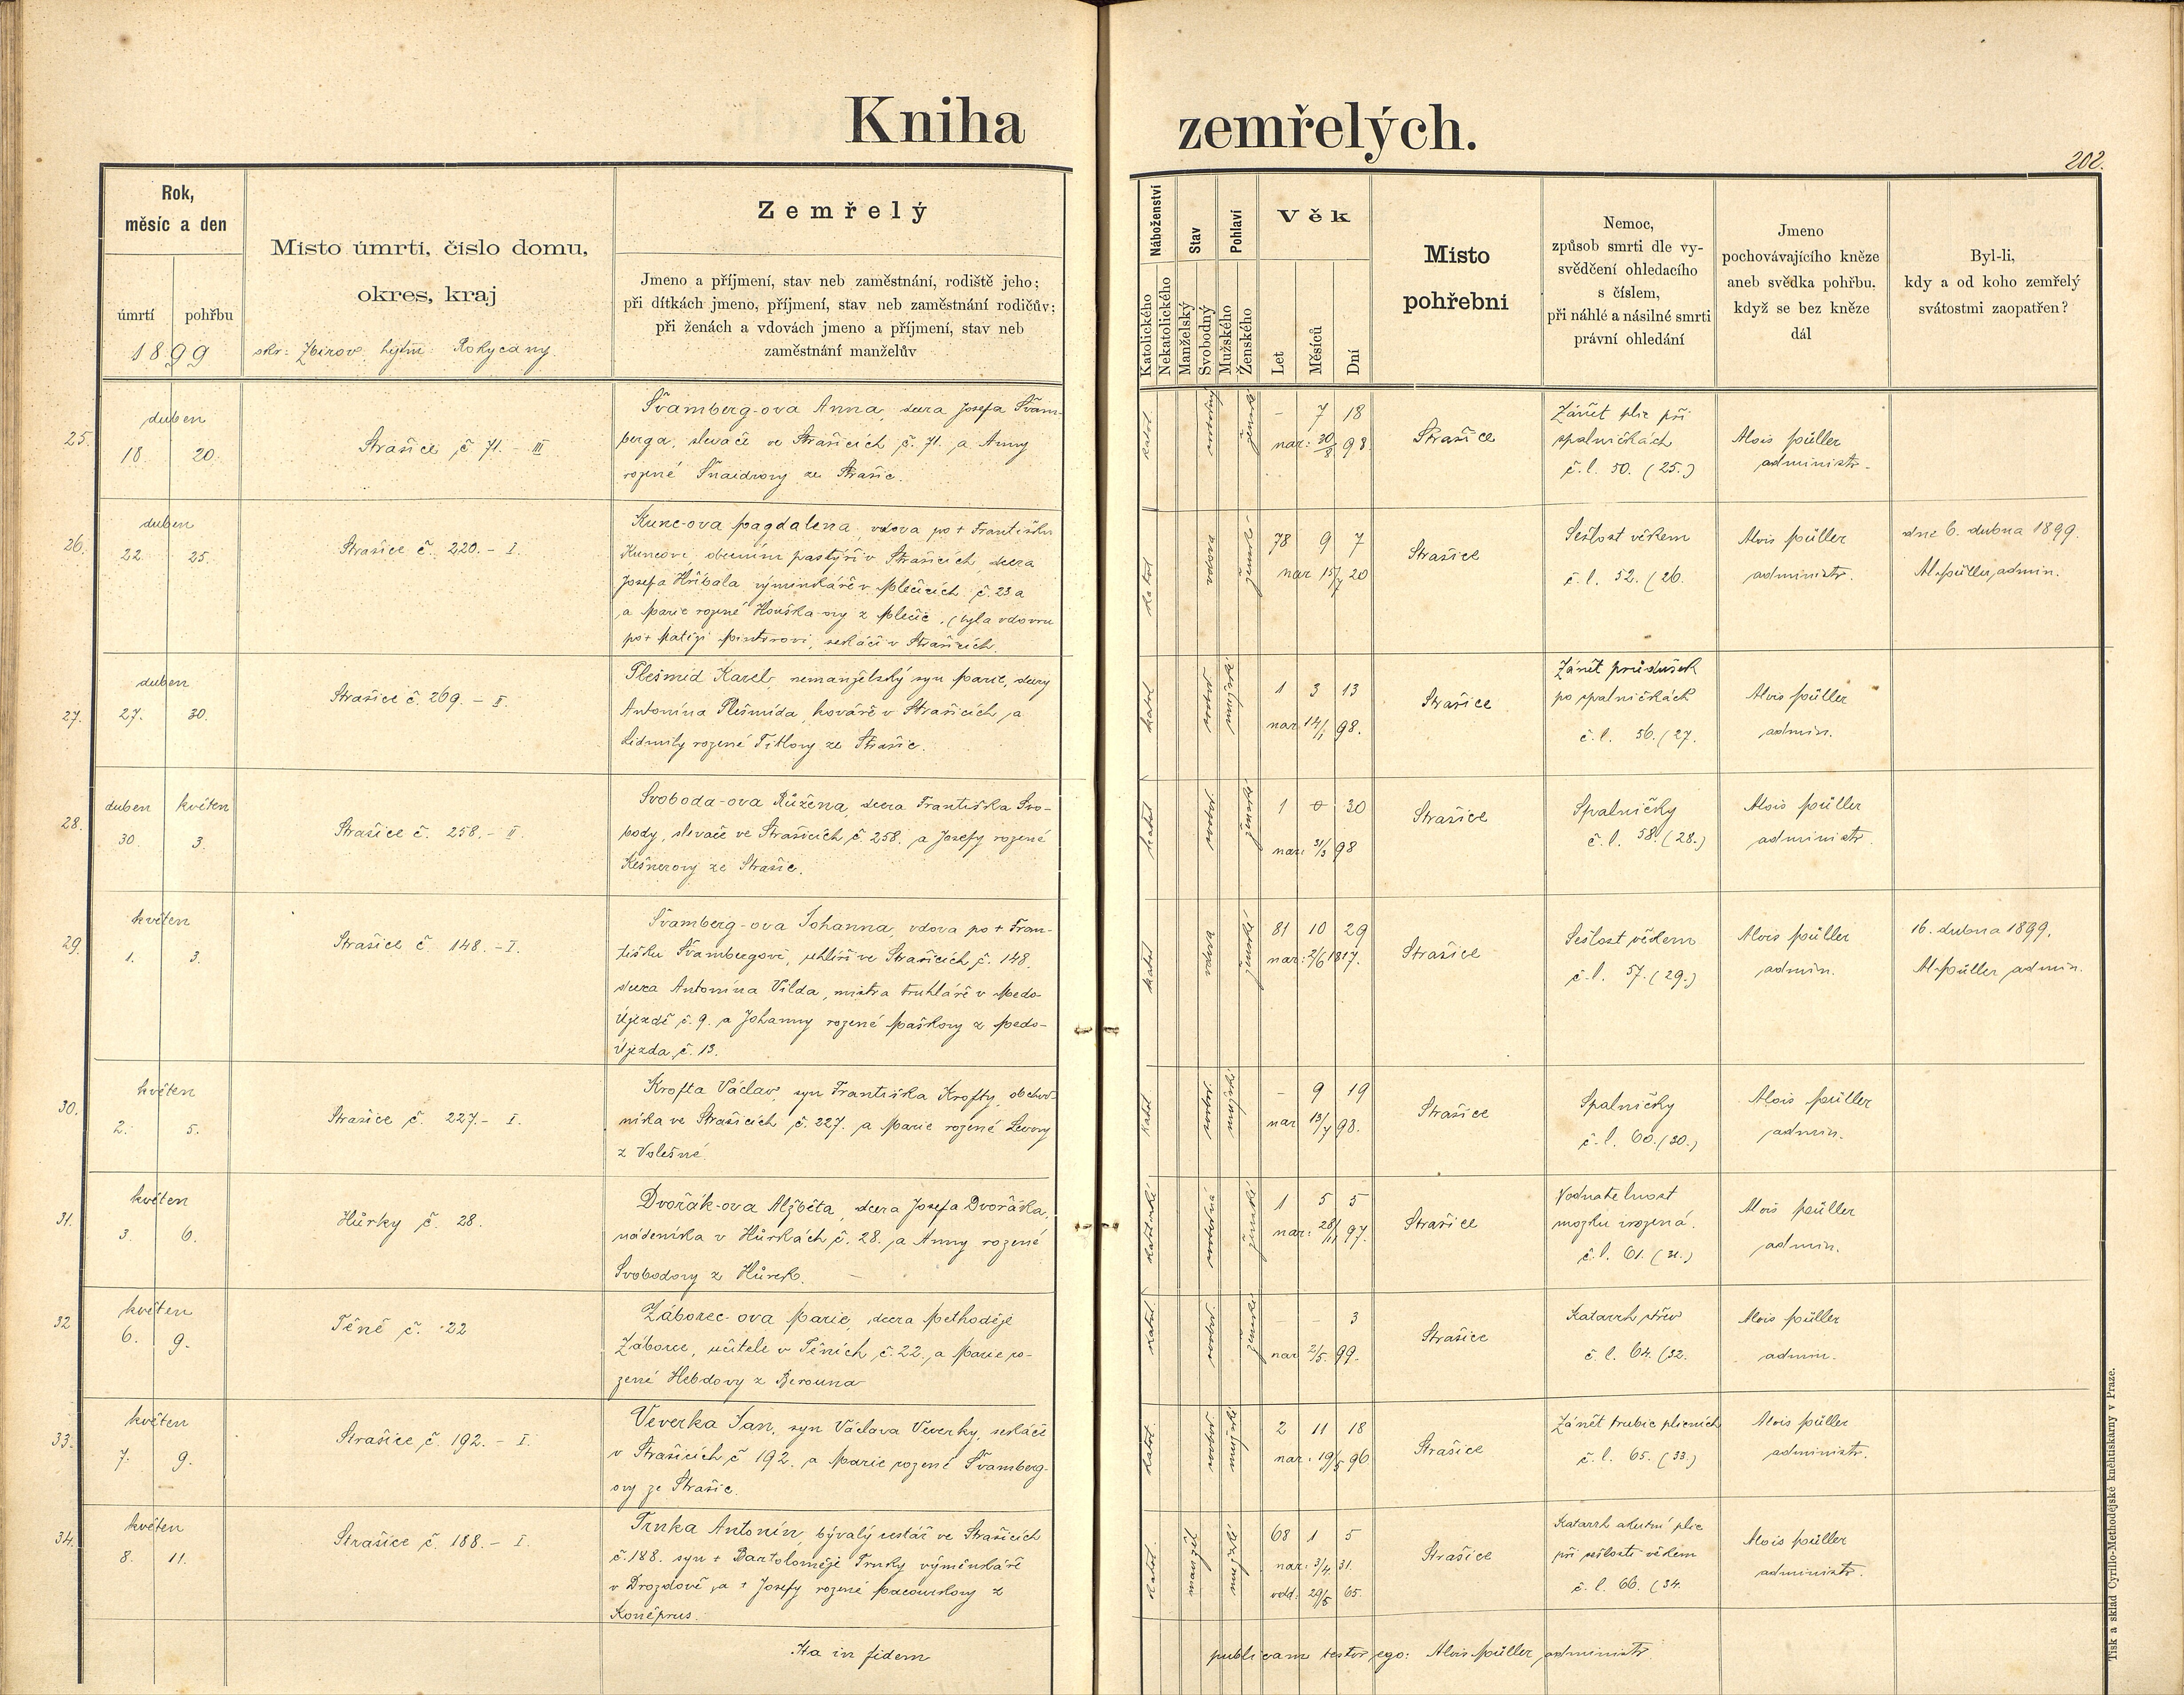 Kniha zemřelých.
202.
Rok,
měsíc a den
úmrtí pohřbu
1899
Místo úmrtí, číslo domu,
okres, kraj
okr: Zbirov, hejtm: Rokycany.
Zemřelý
Jmeno a příjmení, stav neb zaměstnání, rodiště jeho;
při dítkách jmeno, příjmení, stav neb zaměstnání rodičův;
při ženách a vdovách jmeno a příjmení, stav neb
zaměstnání manželův
Náboženství
Katolického
Nekatolického
Stav
Manželský
Svobodný
Pohlaví
Mužského
Ženského
Věk
Let
Měsíců
Dní
Místo
pohřební
Nemoc,
způsob smrti dle vy-
svědčení ohledacího
s číslem,
při náhlé a násilné smrti
právní ohledání
Jmeno
pochovávajícího kněze
aneb svědka pohřbu,
když se bez kněze
dál
Byl-li,
kdy a od koho zemřelý
svátostmi zaopatřen?
25.
duben
18. 20.
Strašice č 71. - III
Švamberg-ova Anna, dcera Josefa Švam-
berga, slevače ve Strašicích č. 71. a Anny
rozené Šnaidrovy ze Strašic.
katol. svobodný ženské
- 7 18
nar: 30/8 98.
Strašice
Zánět plic při
spalničkách
č. l. 50. (25.)
Alois Müller
administr.
26.
duben
22. 25.
Strašice č. 220. - I.
Kunc-ova Magdalena, vdova po + Františku
Kuncovi, obecním pastýři v Strašicích, dcera
Josefa Hříbala výminkáře v Mlečicích č. 23 a
a Marie rozené Houška-ovy z Mlečic, (byla vdovou
po + Matěji Pintrovi, sedláči v Strašicích.
katol vdova ženské
78 9 7
nar 15/7 20
Strašice
Sešlost věkem
č. l. 52. (26.
Alois Müller
administr.
dne 6. dubna 1899.
Al. Müller, admin.
27.
duben
27. 30.
Strašice č. 269. - II.
Plešmíd Karel, nemanželský syn Marie, dcery
Antonína Plešmída, kováře v Strašicích, a
Lidmily rozené Titlovy ze Strašic.
katol svobod mužské
1 3 13
nar 14/1 98.
Strašice
Zánět průdušek
po spalničkách
č. l. 56. (27.
Alois Müller
admin.
28.
duben květen
30. 3.
Strašice č. 258. - II.
Svoboda-ova Růžena, dcera Františka Svo-
body, slevače ve Strašicích, č 258. a Josefy rozené
Kešnerovy ze Strašic.
katol svobod ženské
1 0 30
nar: 31/3 98
Strašice
Spalničky
č. l. 58. (28.)
Alois Müller
administr.
29.
květen
1. 3.
Strašice č. 148. - I.
Švamberg-ova Johanna, vdova po + Fran-
tišku Švambergovi, uhlíři ve Strašicích č. 148.
dcera Antonína Vilda, mistra truhláře v Medo-
Újezdě č. 9. a Johanny rozené Maškovy z Medo-
Újezda, č. 13.
katol vdova ženské
81 10 29
nar: 2/6 1817.
Strašice
Sešlost věkem
č. l. 57. (29.)
Alois Müller
admin.
16. dubna 1899.
Al. Müller, admin.
30.
květen
2. 5.
Strašice č. 227. - I.
Krofta Václav, syn Františka Krofty, obchod-
níka ve Strašicích č. 227. a Marie rozené
z Volešné.
katol svobod mužské
- 9 19
nar 13/7 98.
Strašice
Spalničky
č. l. 60. (30.)
Alois Müller
admin.
31.
květen
3. 6.
Hůrky č. 28.
Dvořák-ova Alžběta, dcera Josefa Dvořáka,
nádeníka v Hůrkách č. 28. a Anny rozené
Svobodovy z Hůrek.
katolické svobodná ženské
1 5 5
nar: 28/11 97.
Strašice
Vodnatelnost
mozku vrozená.
č. l. 61. (31.)
Alois Müller
admin.
32
květen
6. 9.
Těně č. 22
Záborec-ova Marie, dcera Methoděje
Záborce, učitele v Těních č. 22. a Marie ro-
zené Hebdovy z Berouna
katol svobod ženské
- - 3
nar 2/5. 99.
Strašice
Katarrh střev
č. l. 64. (32.
Alois Müller
admin.
33.
květen
7. 9.
Strašice č. 192. - I.
Veverka Jan, syn Václava Veverky, sedláče
v Strašicích č 192. a Marie rozené Švamberg-
ovy ze Strašic.
katol. svobod mužské
2 11 18
nar: 19/5 96
Strašice
Zánět trubic plicních
č. l. 65. (33.)
Alois Müller
administr.
34.
květen
8. 11.
Strašice č. 188. - I.
Trnka Antonín, bývalý cestář ve Strašicích
č. 188. syn + Bartoloměje Trnky výměnkáře
v Drozdově, a + Josefy rozené z
Koněprus.
katol. manžel mužské
68 1 5
nar: 3/4 31.
odd: 29/5 65.
Strašice
Katarrh akutní plic
při sešlosti věkem
č. l. 66. (34.
Alois Müller
administr.
Ita in fidem publicam testor ego: Alois Müller, administr.
Tisk a sklad Cyrillo-Methodějské knihtiskárny v Praze.